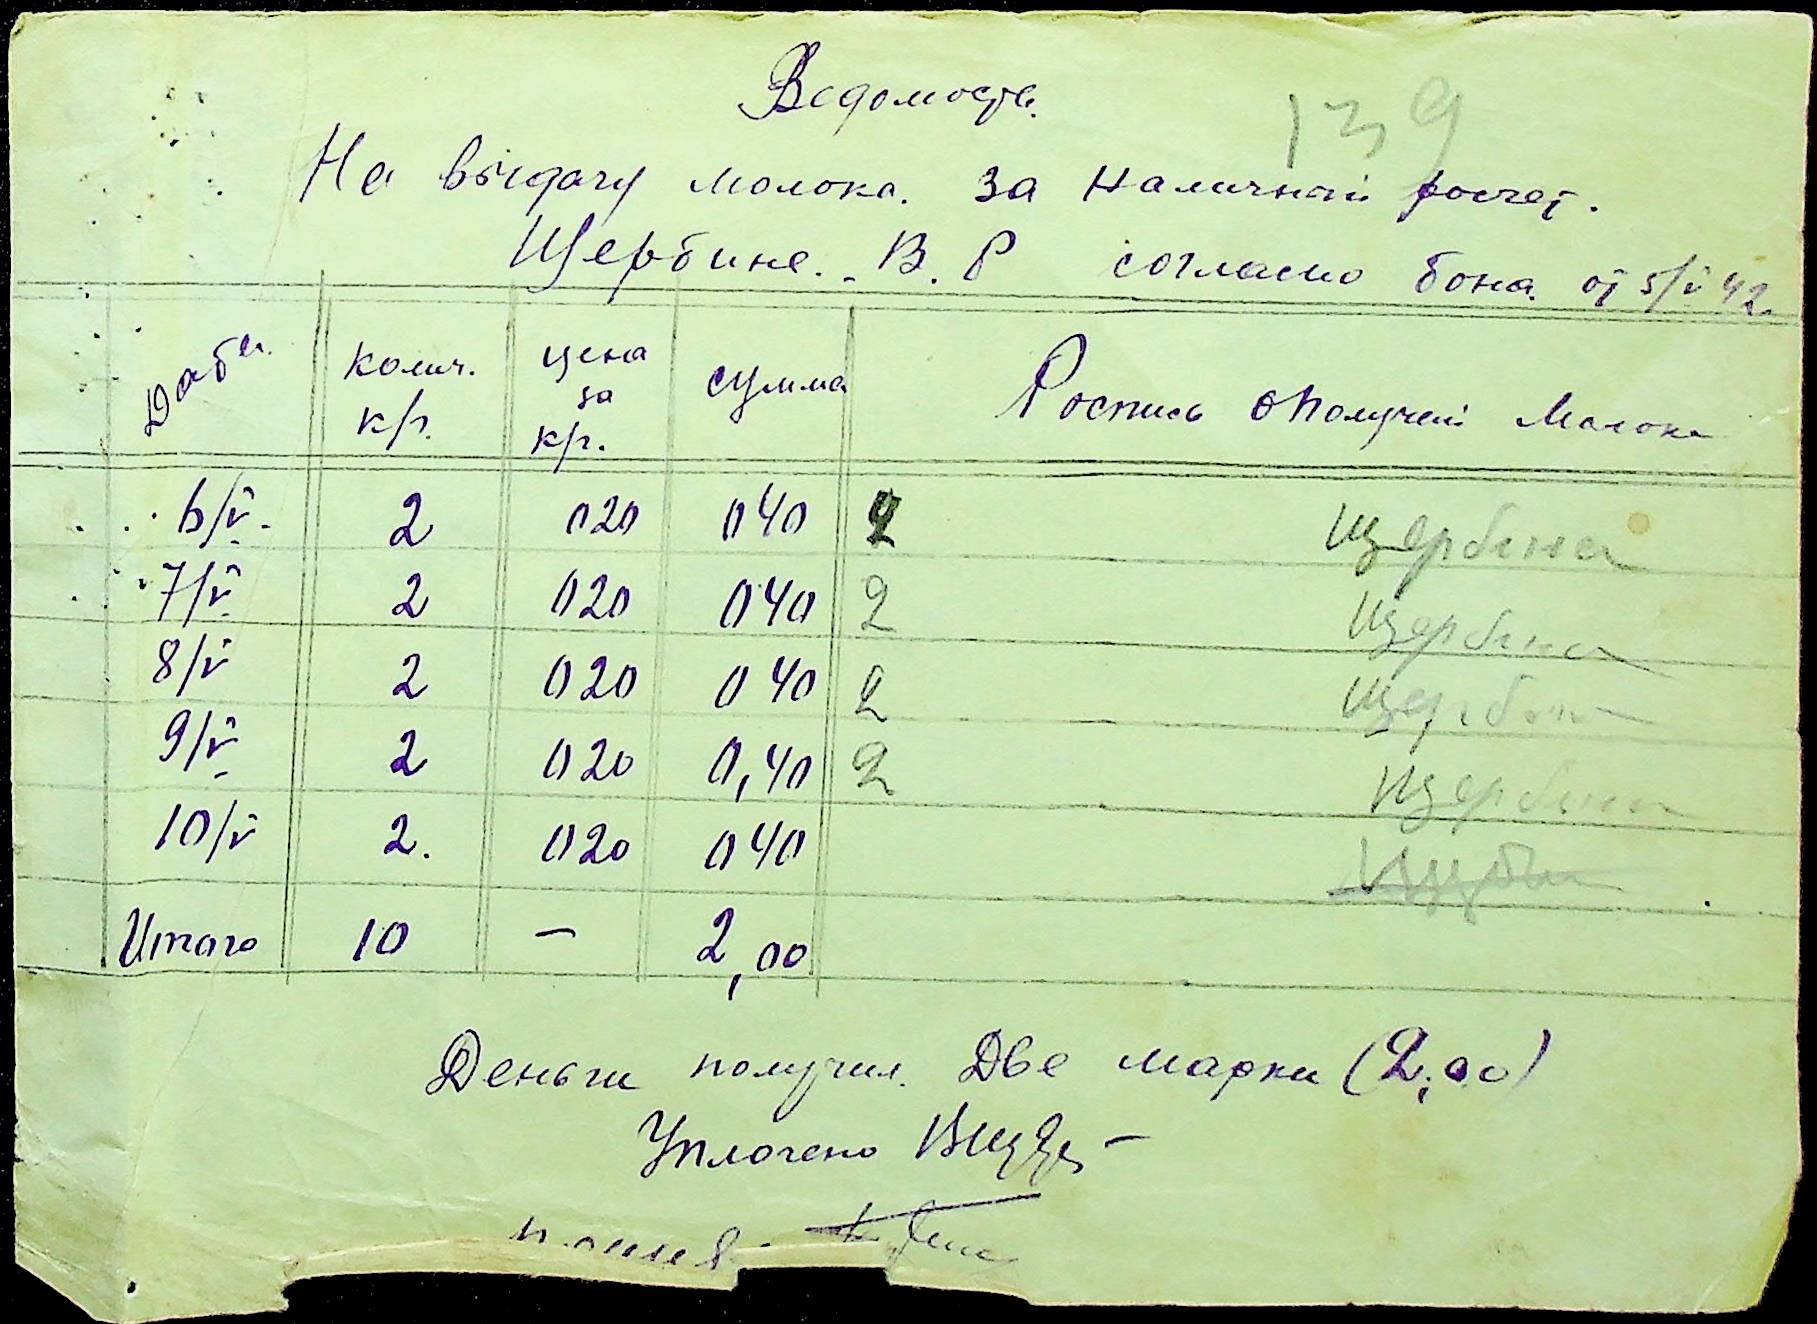 Ведомость.
139
На выдачу молока. за наличный росчет.
Щербине. В. Р согласно бона от 5/V 42.
Даты. колич. к/р. цена за к/р. сумма Роспись о получении Молока
6/V. 2 020 040 2 Щербина
7/V. 2 020 040 2 Щербина
8/V 2 020 040 2 Щербина
9/V 2 020 0,40 2 Щербина
10/V 2. 020 040
Итого 10 — 2,00
Деньги получил. Две марки (2,00)
Уплочено